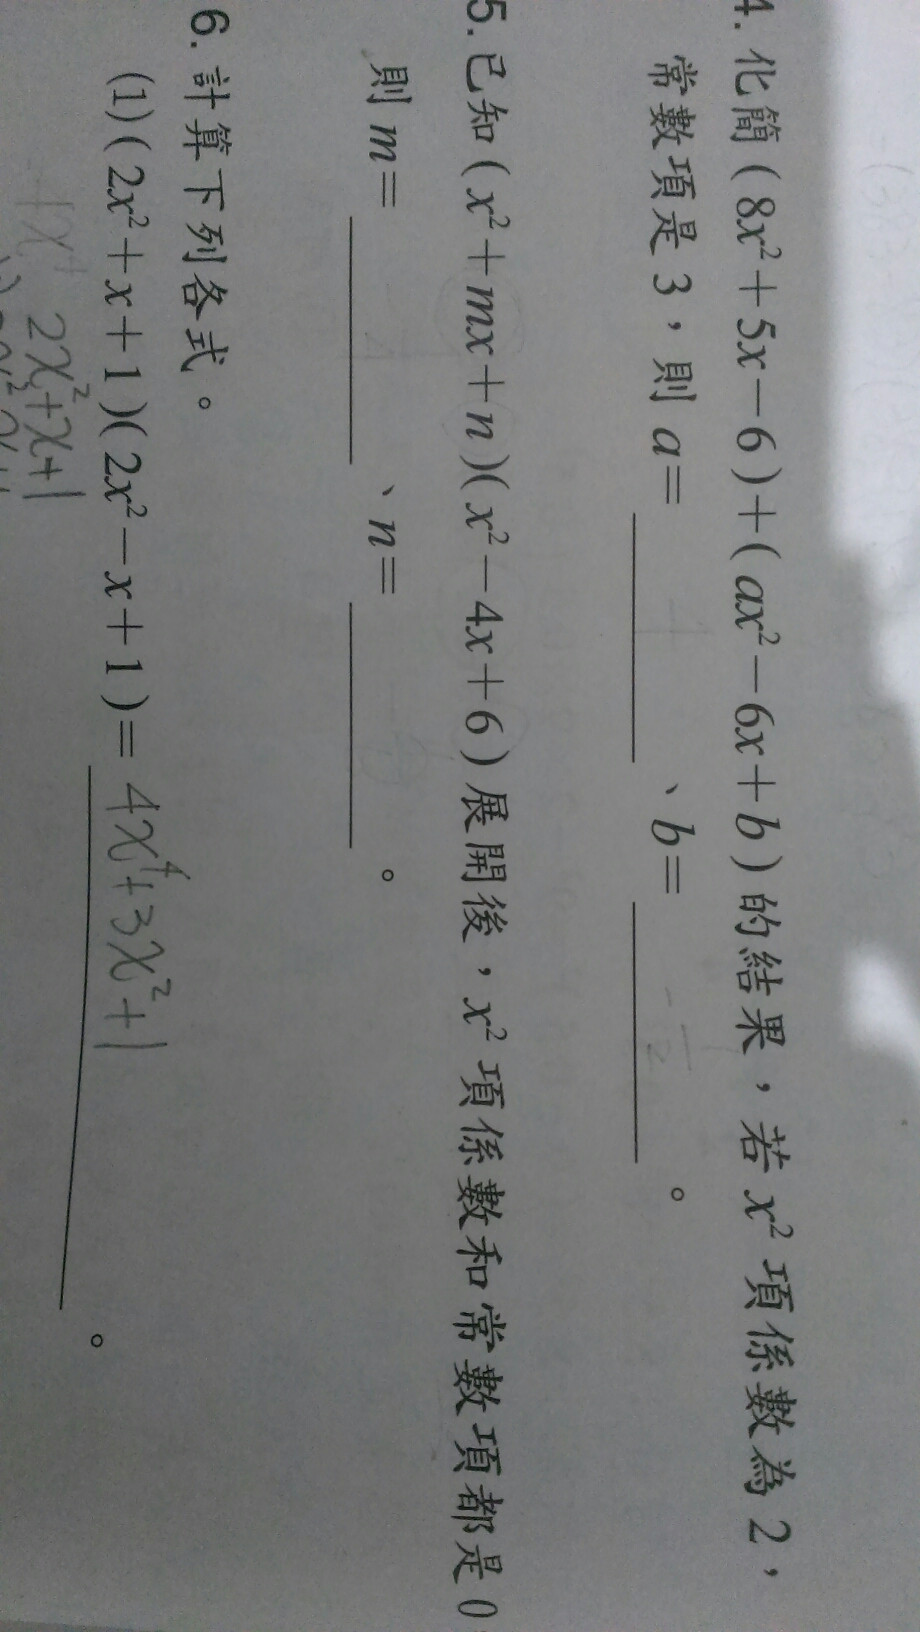 4. 化簡(8x²+5x-6)+(ax²-6x+b)的結果，若x²項係數為2，
常數項是3，則a=＿＿＿＿、b=＿＿＿＿。
5. 已知(x²+mx+n)(x²-4x+6)展開後，x²項係數和常數項都是0
則m=＿＿＿＿、n=＿＿＿＿。
6. 計算下列各式。
(1)(2x²+x+1)(2x²-x+1)=4x⁴+3x²+1。
2x²+x+1